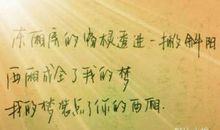 东厢房的窗棂透进一抹斜阳
西厢成全了我的梦
我的梦装点了你的西厢.